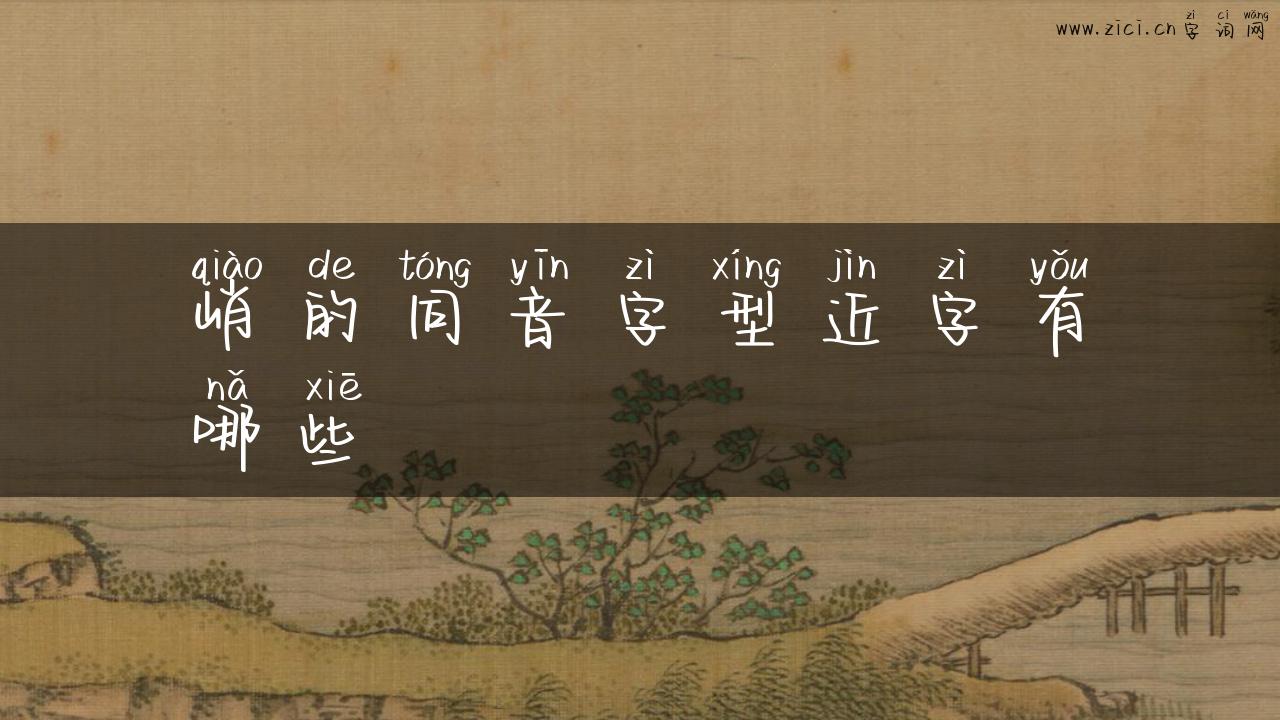 zì cí wǎng
www.zici.cn 字 词 网
qiào de tóng yīn zì xíng jìn zì yǒu
峭 的 同 音 字 型 近 字 有
nǎ xiē
哪 些